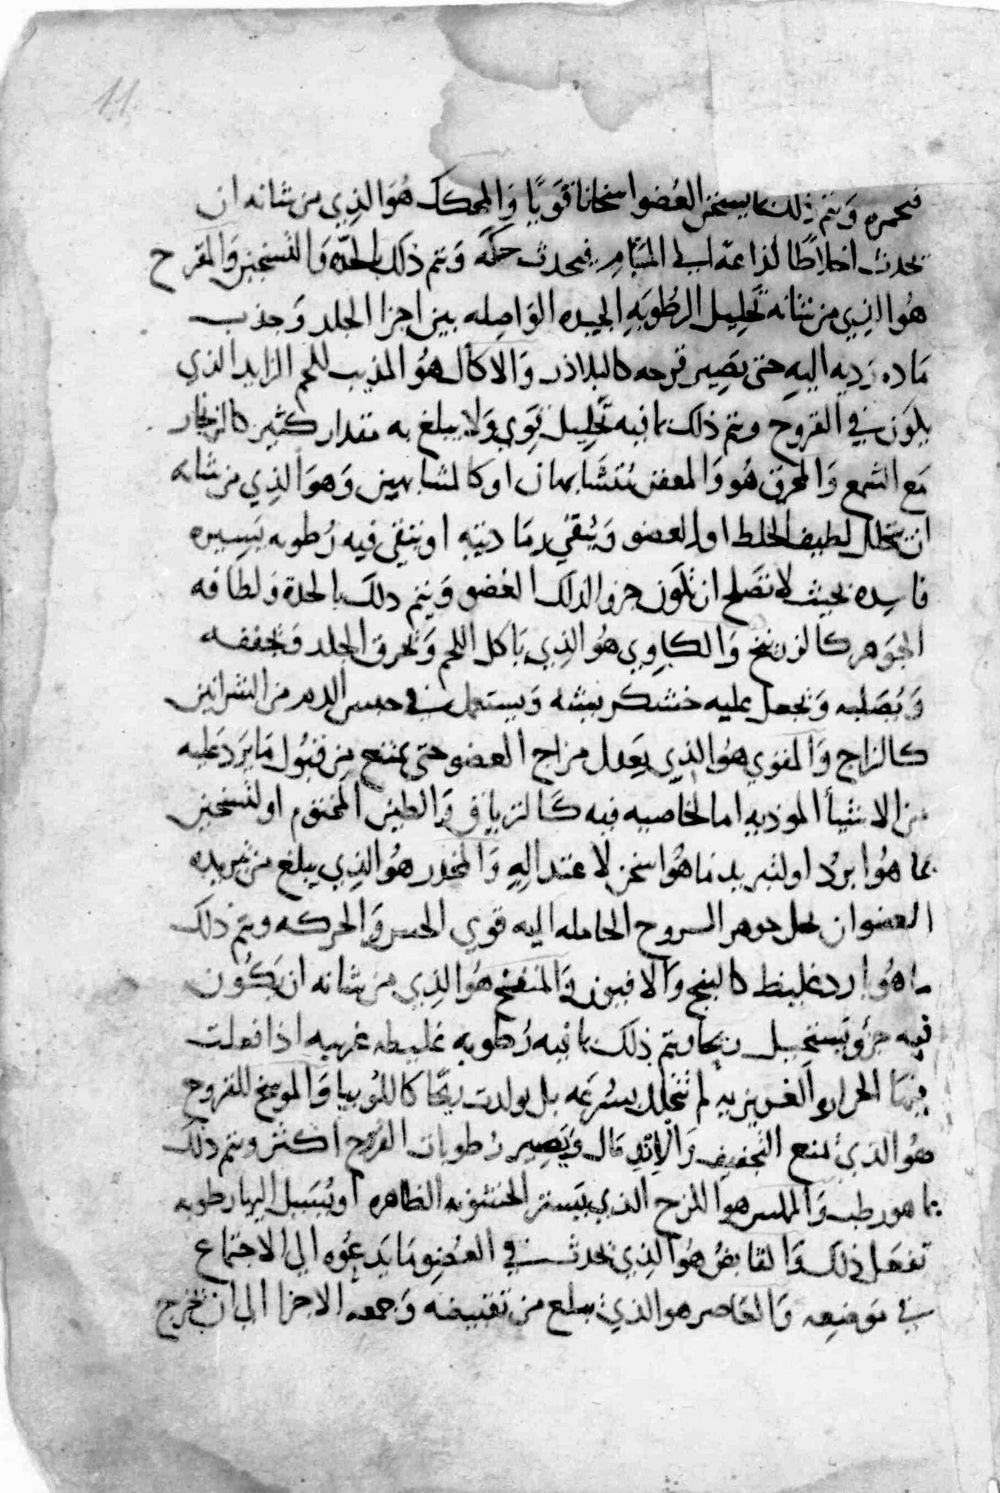 11
فيحمره ويتم ذلك بما يسخن العضو اسخانا قويا والمحكك هو الذي من شانه ان
يحدث اخلاطا لذاعة الى المسام فيحدث حكه ويتم ذلك بالحدة والتسخين والمقرح
هو الذي من شانه تحليل الرطوبه الجيده الواصله بين اجزا الجلد وجذب
ماده رديه اليه حتى يصير قرحه كالبلاذر والاكال هو المذيب اللحم الزايد الذي
يكون في القروح ويتم ذلك بما فيه تحليل قوي ولا يبلغ به مقدار كثير كالزنجار
مع الشمع والمحرق هو والمعفن متشابهان او كالمتشابهين وهو الذي من شانه
ان يحلل لطيف الخلط او العضو ويبقي رماديته او يبقي فيه رطوبه يسيره
فاسده بحيث لا تصلح ان تكون جزوا لذلك العضو ويتم ذلك بالحدة ولطافه
الجوهر كالزرنيخ والكاوي هو الذي ياكل اللحم ويحرق الجلد ويجففه
ويصلبه ويجعل عليه خشكريشه ويستعمل في حبس الدم من الشرائين
كالزاج والمقوي هو الذي يعدل مزاج العضو حتى يمتنع من قبول ما يرد عليه
من الاشيا الموذيه اما لخاصيه فيه كالترياق والطين المختوم او لتسخين
بما هو ابرد او لتبريد ما هو اسخن لاعتداله والمخدر هو الذي يبلغ من تبريده
العضو ان جوهر الروح الحامله اليه قوي الحس والحركه ويتم ذلك
بما هو بارد غليظ كالبنج والافيون والمنفخ هو الذي من شانه ان يكون
فيه جزؤ يستحيل ريحا ويتم ذلك بما فيه رطوبه غليظه غريبه اذا فعلت
فيها الحراره الغريزيه لم تتحلل بسرعه بل يولدت ريحا كاللوبيا والموسخ للقروح
هو الذي يمنع التجفيف والاندمال ويصير رطوبات القروح اكثر ويتم ذلك
بما هو رطب والمملس هو اللزج الذي يستر الخشونه الظاهره او يسيل اليها رطوبه
تفعل ذلك والقابض هو الذي يحدث في العضو ما يدعوه الى الاجتماع
في موضعه والعاصر هو الذي يبلغ من تقبيضه وجمعه الاجزا الى ان يخرج